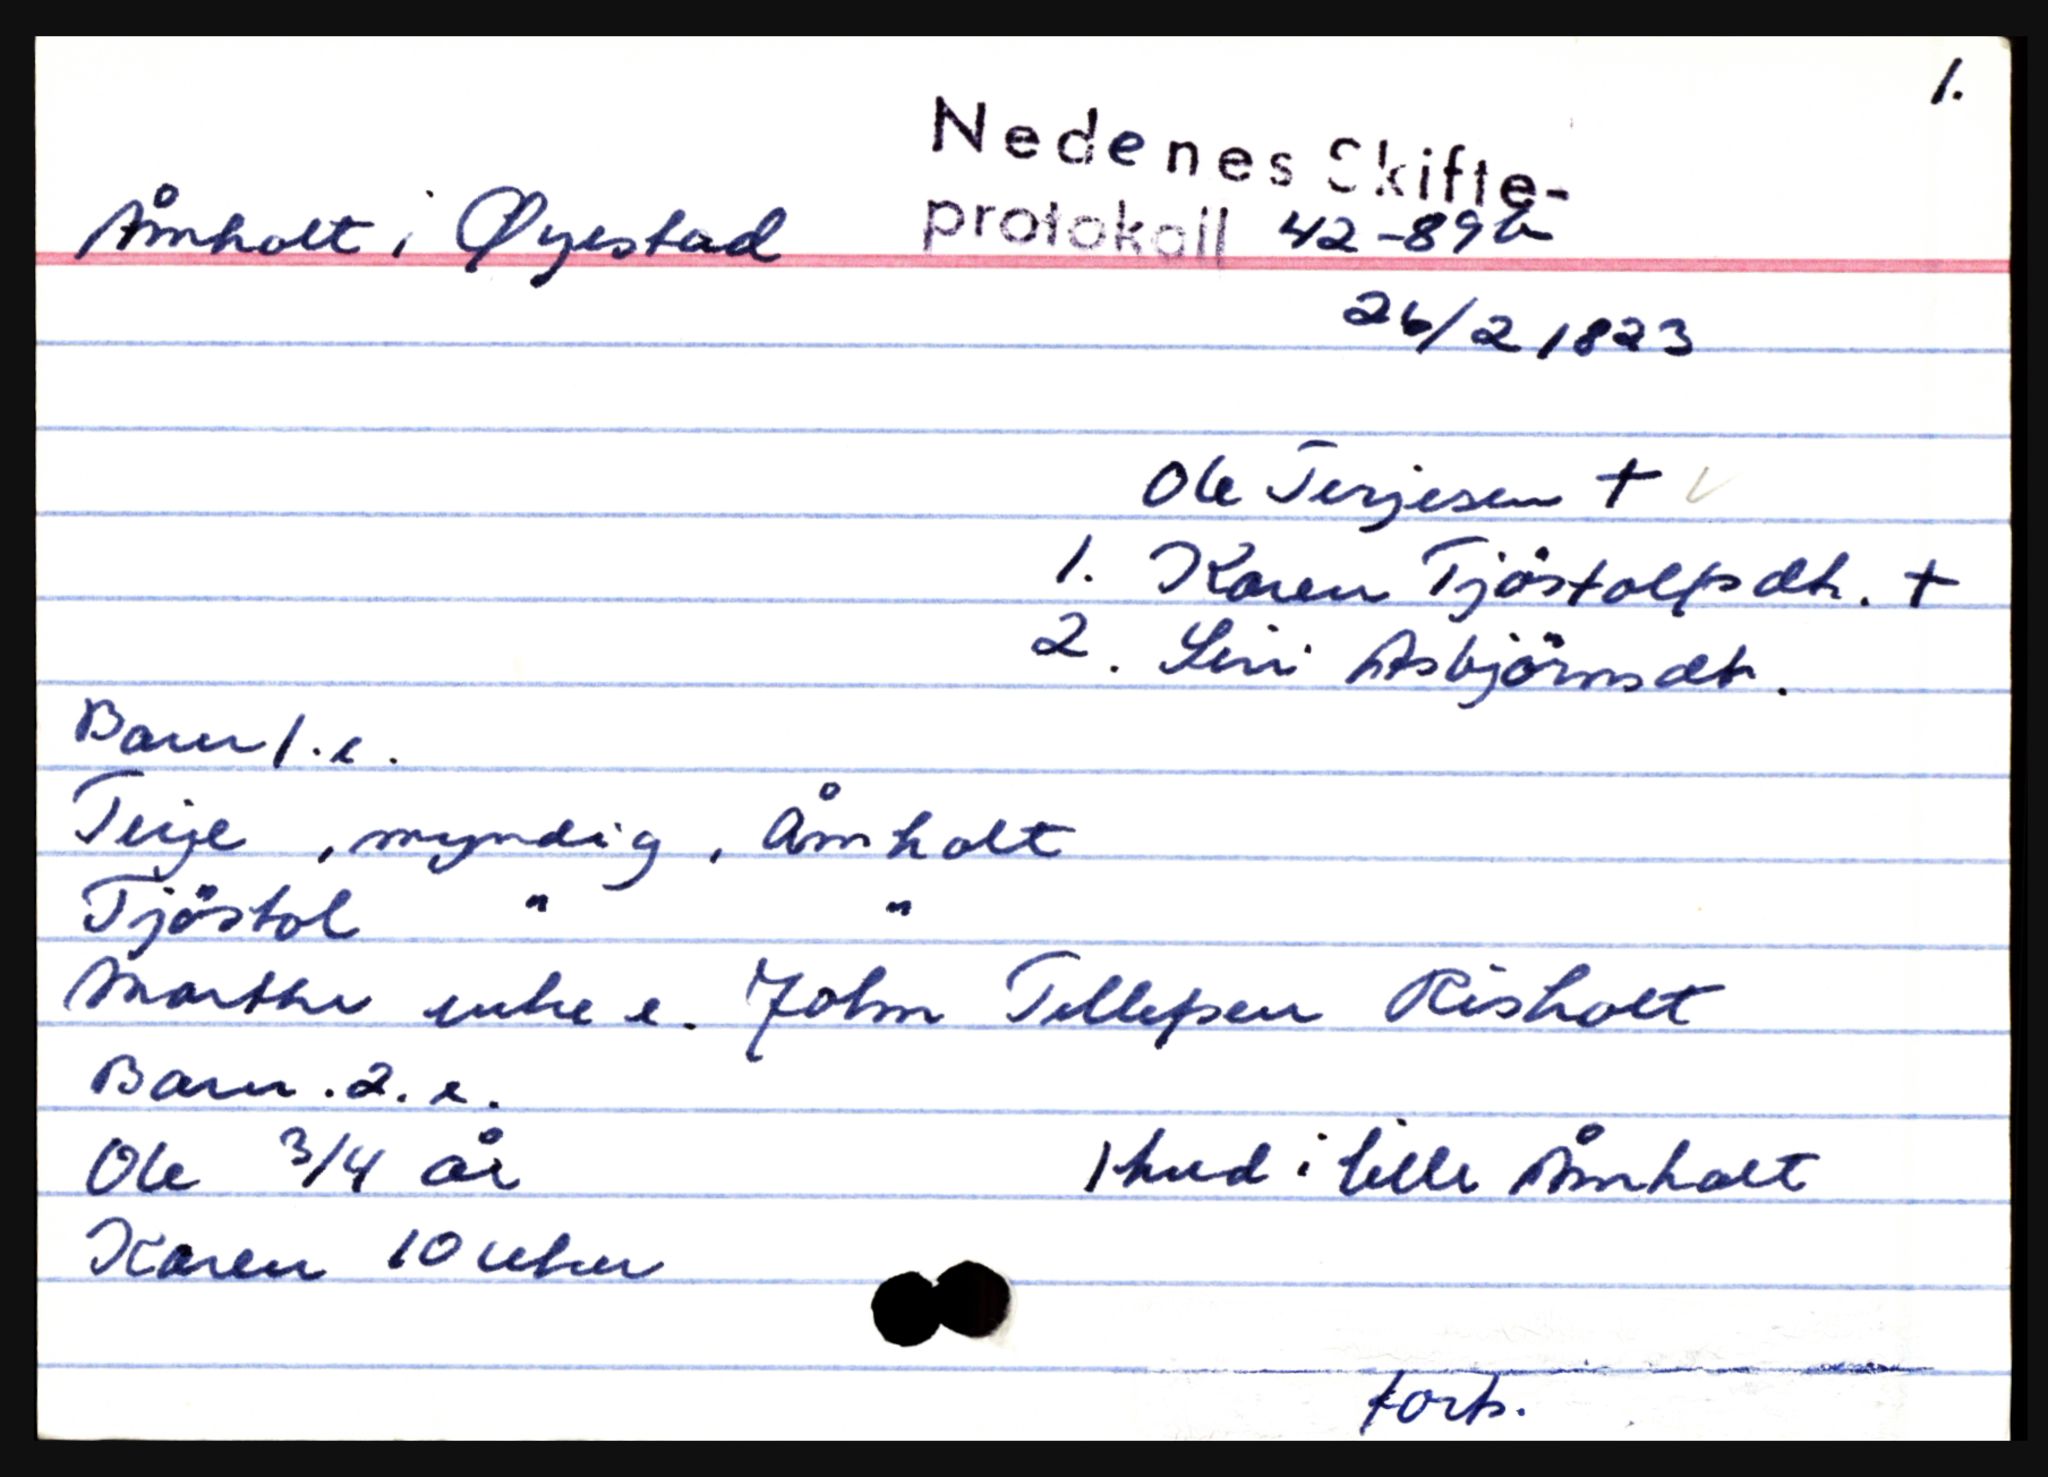 1.
Nedenes Skifte-
Åmholt i Øyestad protokoll 42-89b
26/2 1823
Ole Terjesen +
1. Karen Tjöstolfsdtr. +
2. Siri Asbjörnsdtr.
Barn 1. e.
Terje , myndig , Åmholt
Tjöstol " "
Marthe enke e. John Tellefsen Risholt
Barn . 2. e.
Ole 3/4 år 1 hud i lille Åmholt
Karen 10 uker
forts.